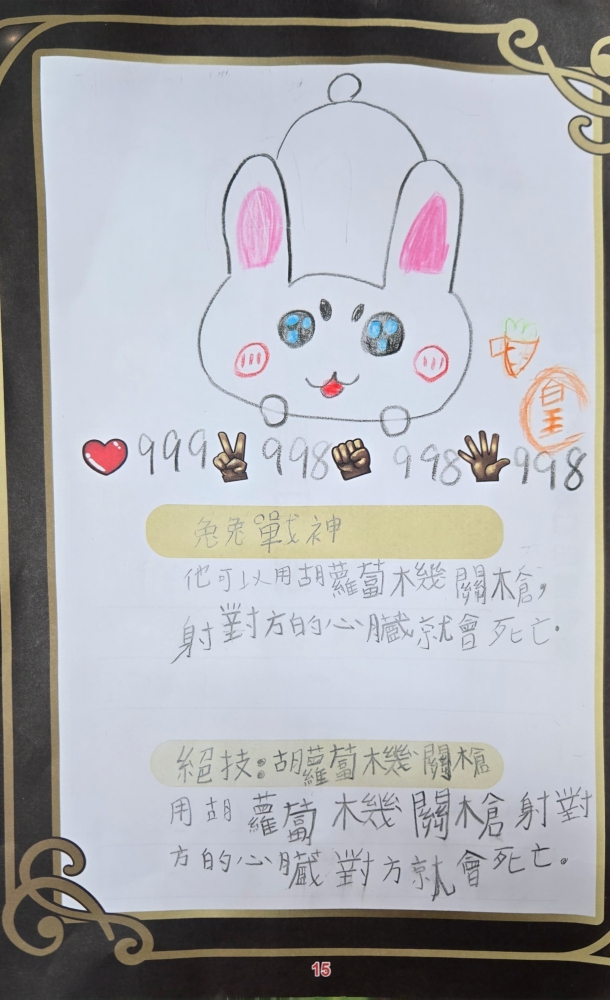 皇
999 998 998 998
兔兔戰神
他可以用胡蘿蔔機關槍,
射對方的心臟就會死亡.
絕技:胡蘿蔔機關槍
用胡蘿蔔機關槍射對
方的心臟對方就會死亡。
15